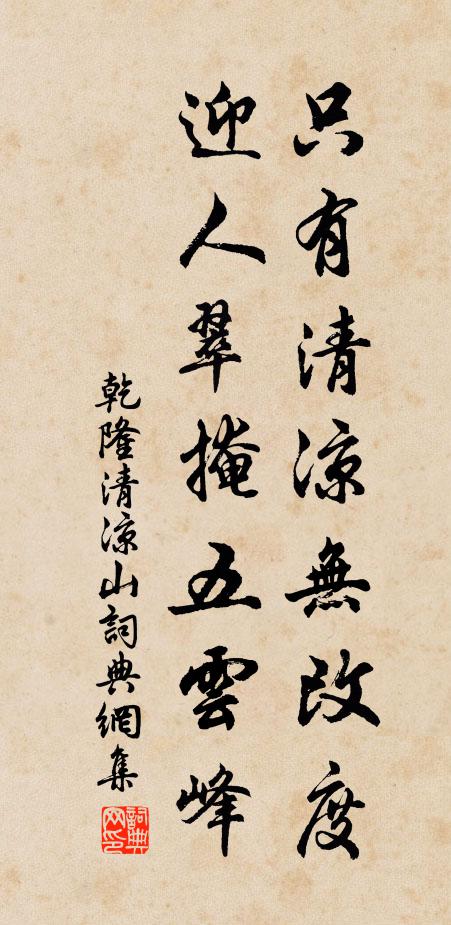 只有清凉無改度
迎人翠掩五雲峰
乾隆清凉山詞典網集
詞典网印